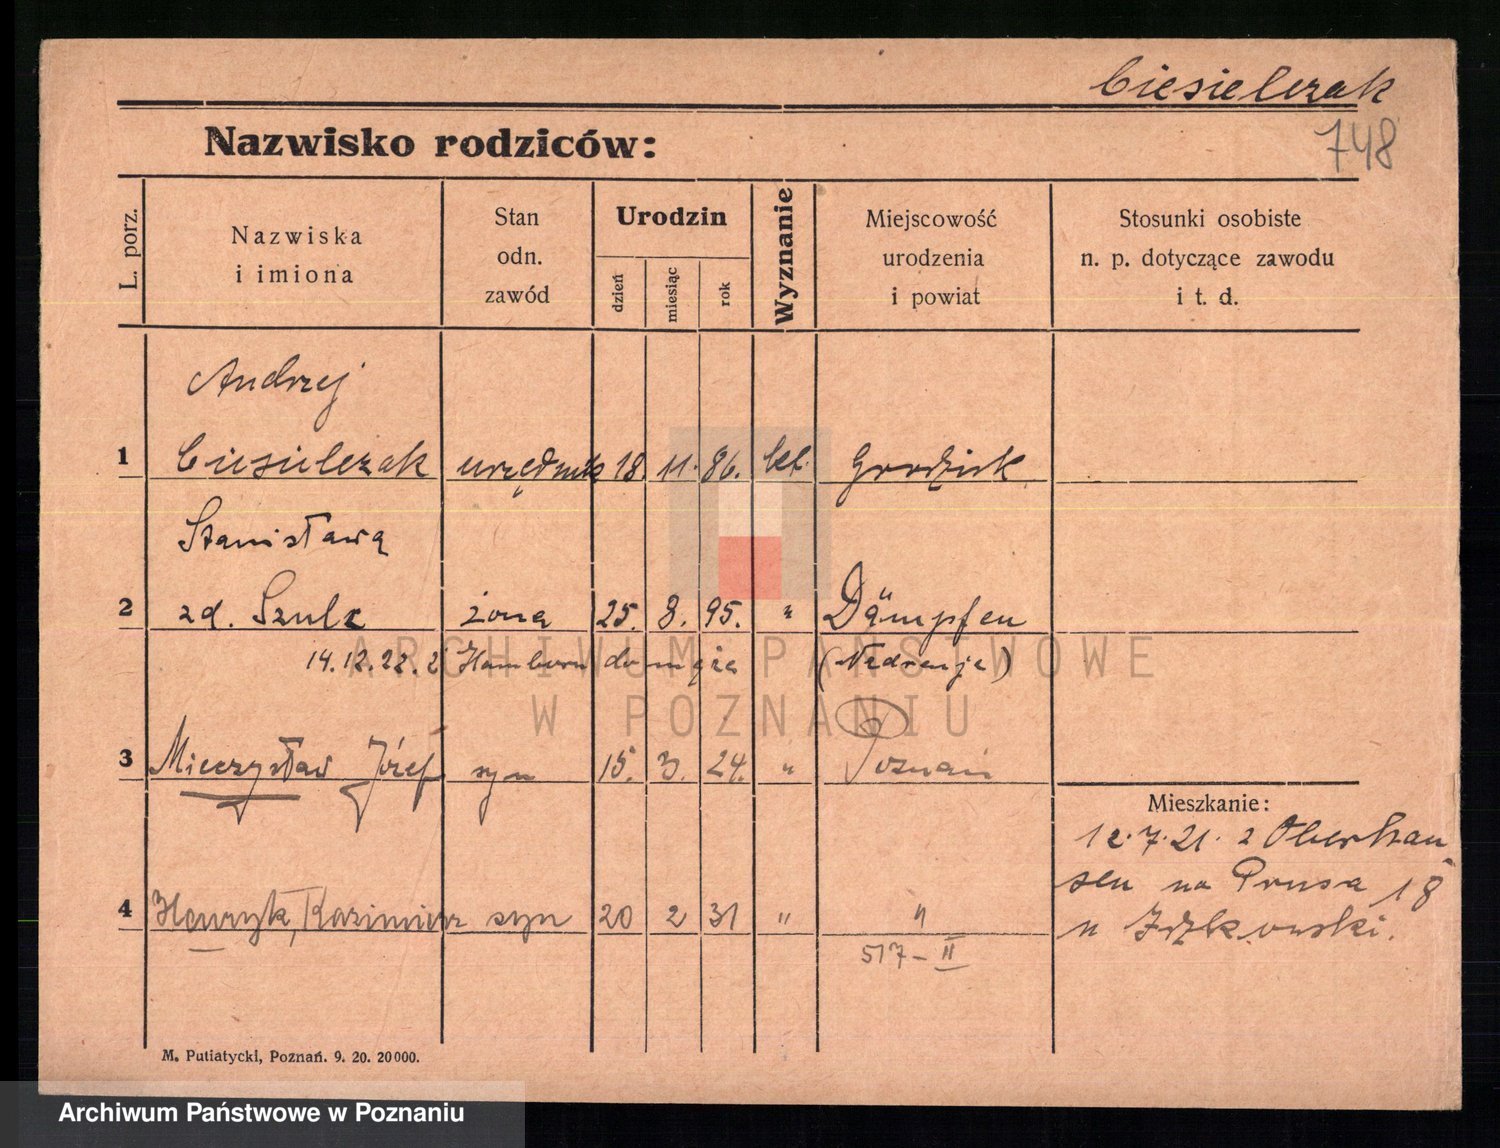 Ciesielczak
Nazwisko rodziców:
748
L. porz.
Nazwiska
i imiona
Stan
odn.
zawód
Urodzin
dzień
miesiąc
rok
Wyznanie
Miejscowość
urodzenia
i powiat
Stosunki osobiste
n. p. dotyczące zawodu
i t. d.
Andrzej
1 Ciesielczak urzędnik 18. 11. 86. kat. Grodzisk
Stanisława
2 zd. Szulc żona 25. 8. 95. " Dämpfen
14.12.22. z Hamborn do męża
3 Mieczysław Józef syn 15. 3. 24. " Poznań
Mieszkanie:
12.7.21. z Oberhau
sen na Prusa 18
4 Henryk, Kazimierz syn 20 2 31 " "
u
517-II
M. Putiatycki, Poznań. 9. 20. 20000.
ARCHIWUM PAŃSTWOWE
W POZNANIU
Archiwum Państwowe w Poznaniu